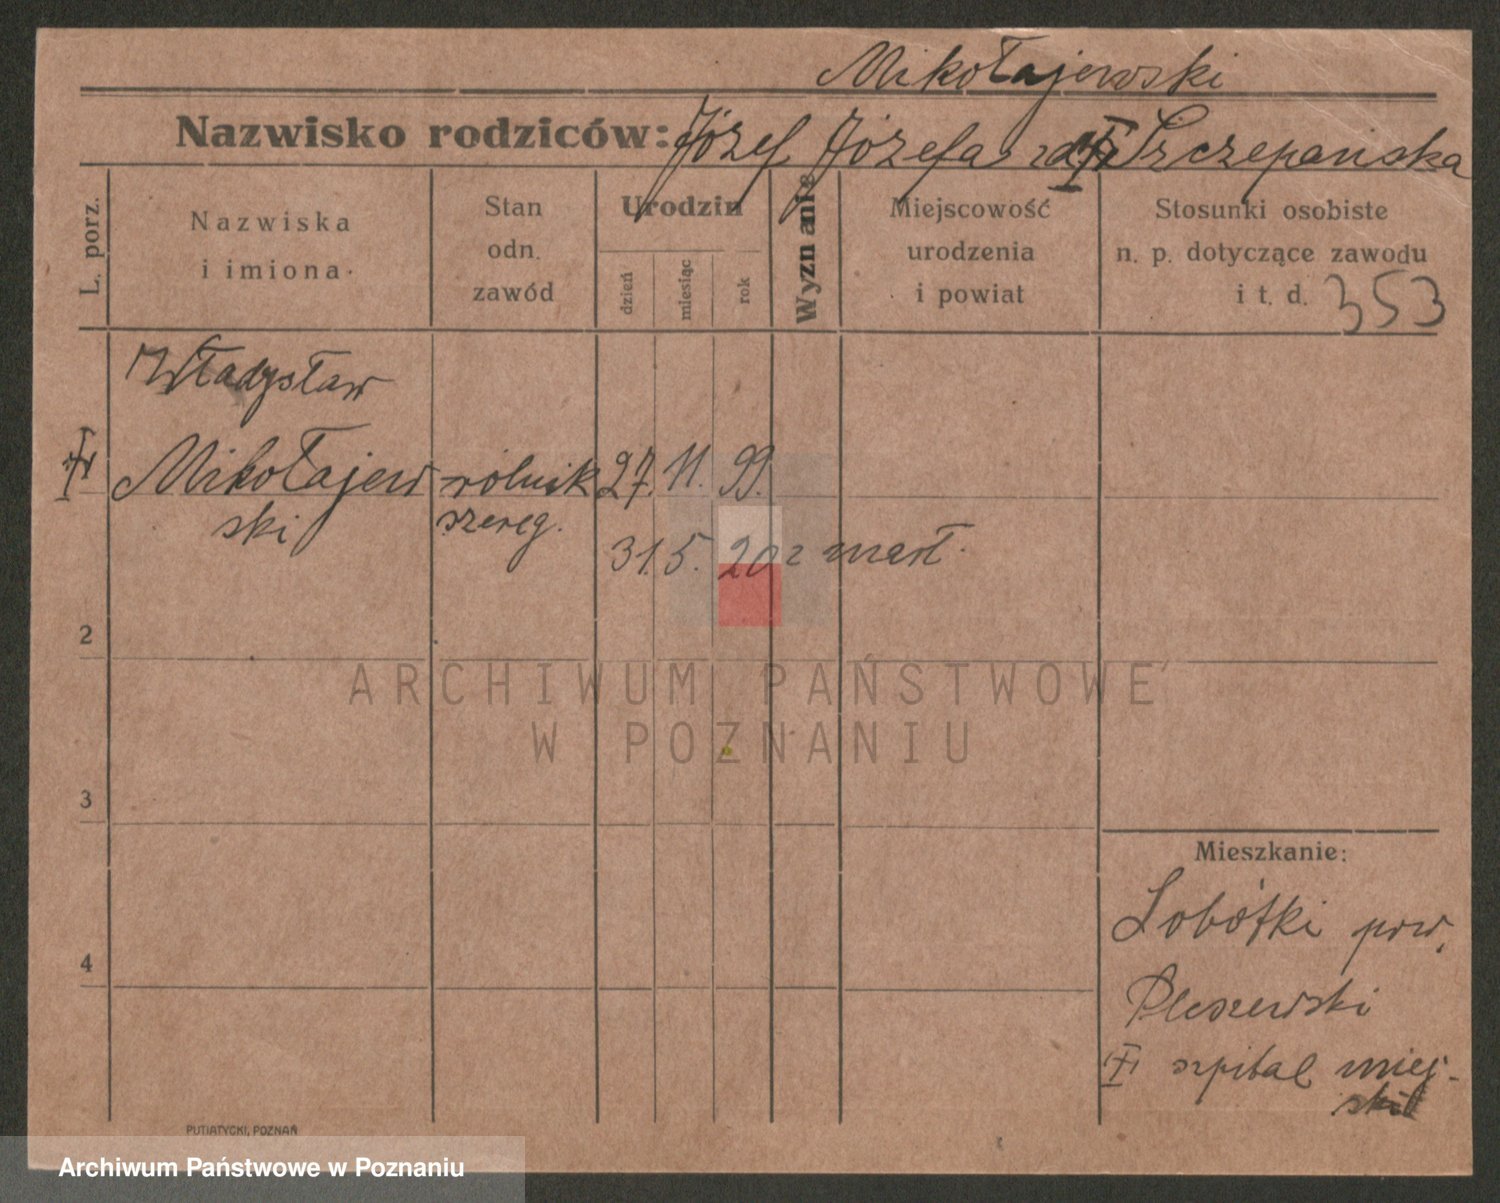 Mikołajewski
Nazwisko rodziców: Józef Józefa z d. Szczepańska
L. porz.
Nazwiska
i imiona.
Stan
odn.
zawód
Urodzin
dzień
miesiąc
rok
Wyznanie
Miejscowość
urodzenia
i powiat
Stosunki osobiste
n. p. dotyczące zawodu
i t. d. 353
Władysław
Mikołajew rolnik 27. 11. 99.
ski szereg.
31. 5. 20 zmarł.
2
3
4
Mieszkanie:
Sobótki pow.
Pleszewski
szpital miej-
ski
PUTIATYCKI, POZNAŃ
ARCHIWUM PAŃSTWOWE
W POZNANIU
Archiwum Państwowe w Poznaniu